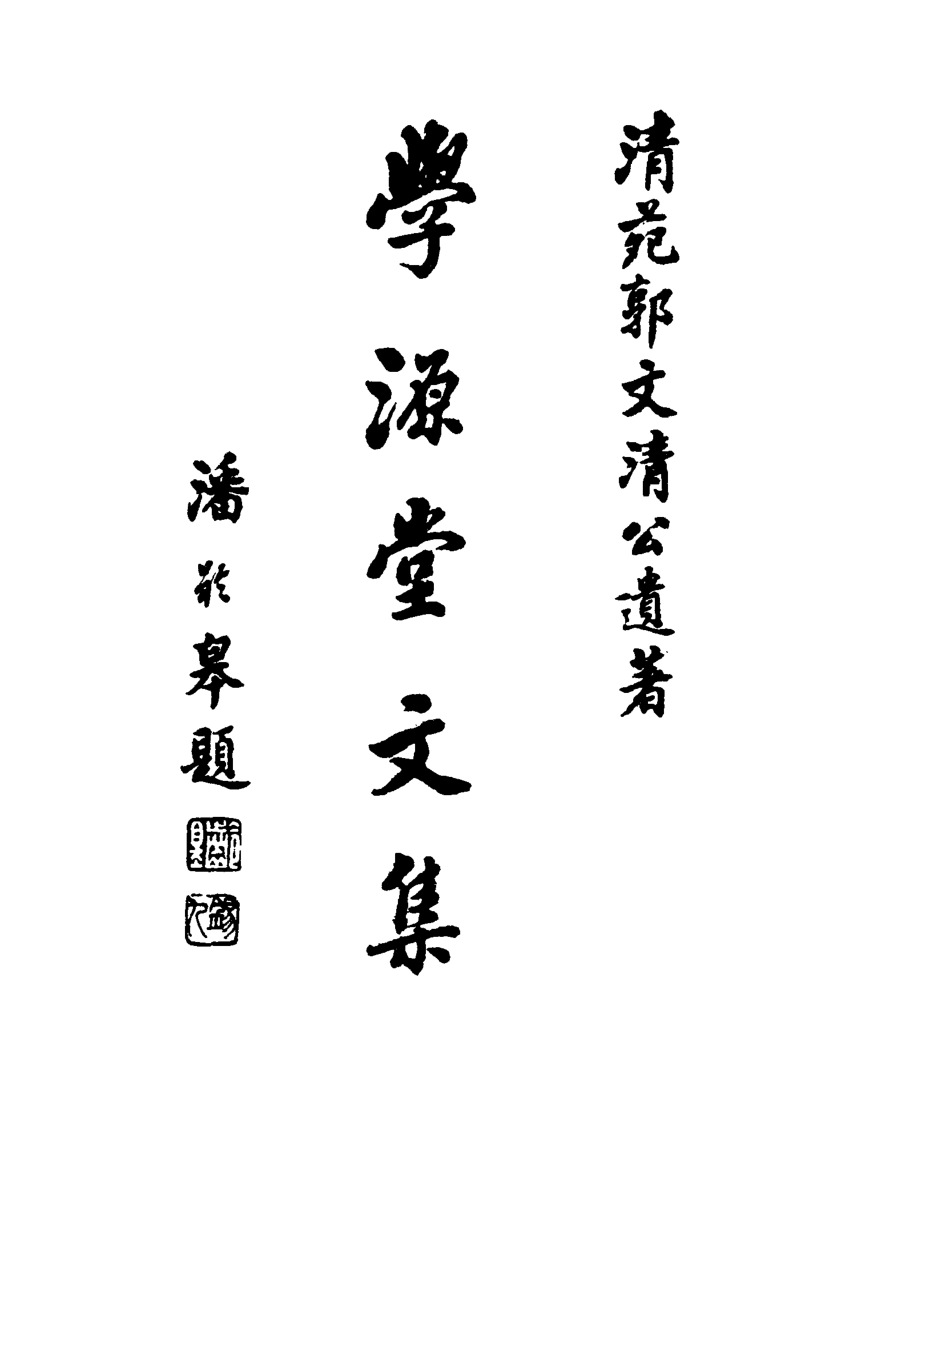 清苑郭文清公遺著
學源堂文集
潘齡皋題